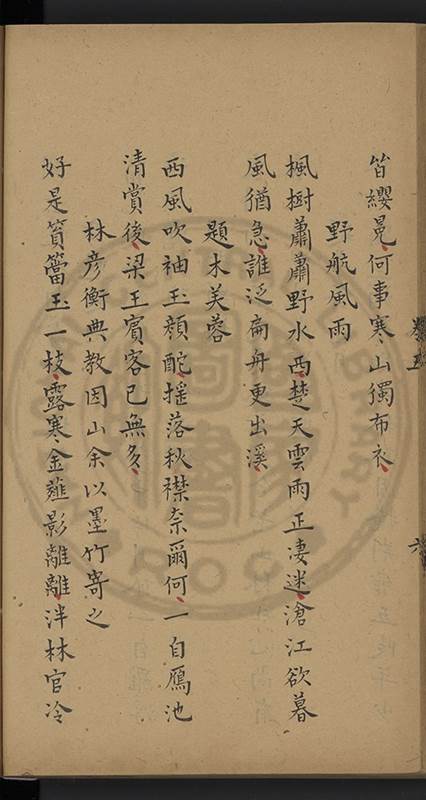 皆纓冕何事寒山獨布衣
野航風雨
楓樹蕭蕭野水西楚天雲雨正凄迷滄江欲暮
風猶急誰泛扁舟更出溪
題木芙蓉
西風吹袖玉顏酡揺落秋襟奈爾何一自鴈池
清賞後梁王賓客已無多
林彦衡典教因山余以墨竹寄之
好是篔簹玉一枝露寒金薤影離離泮林官冷